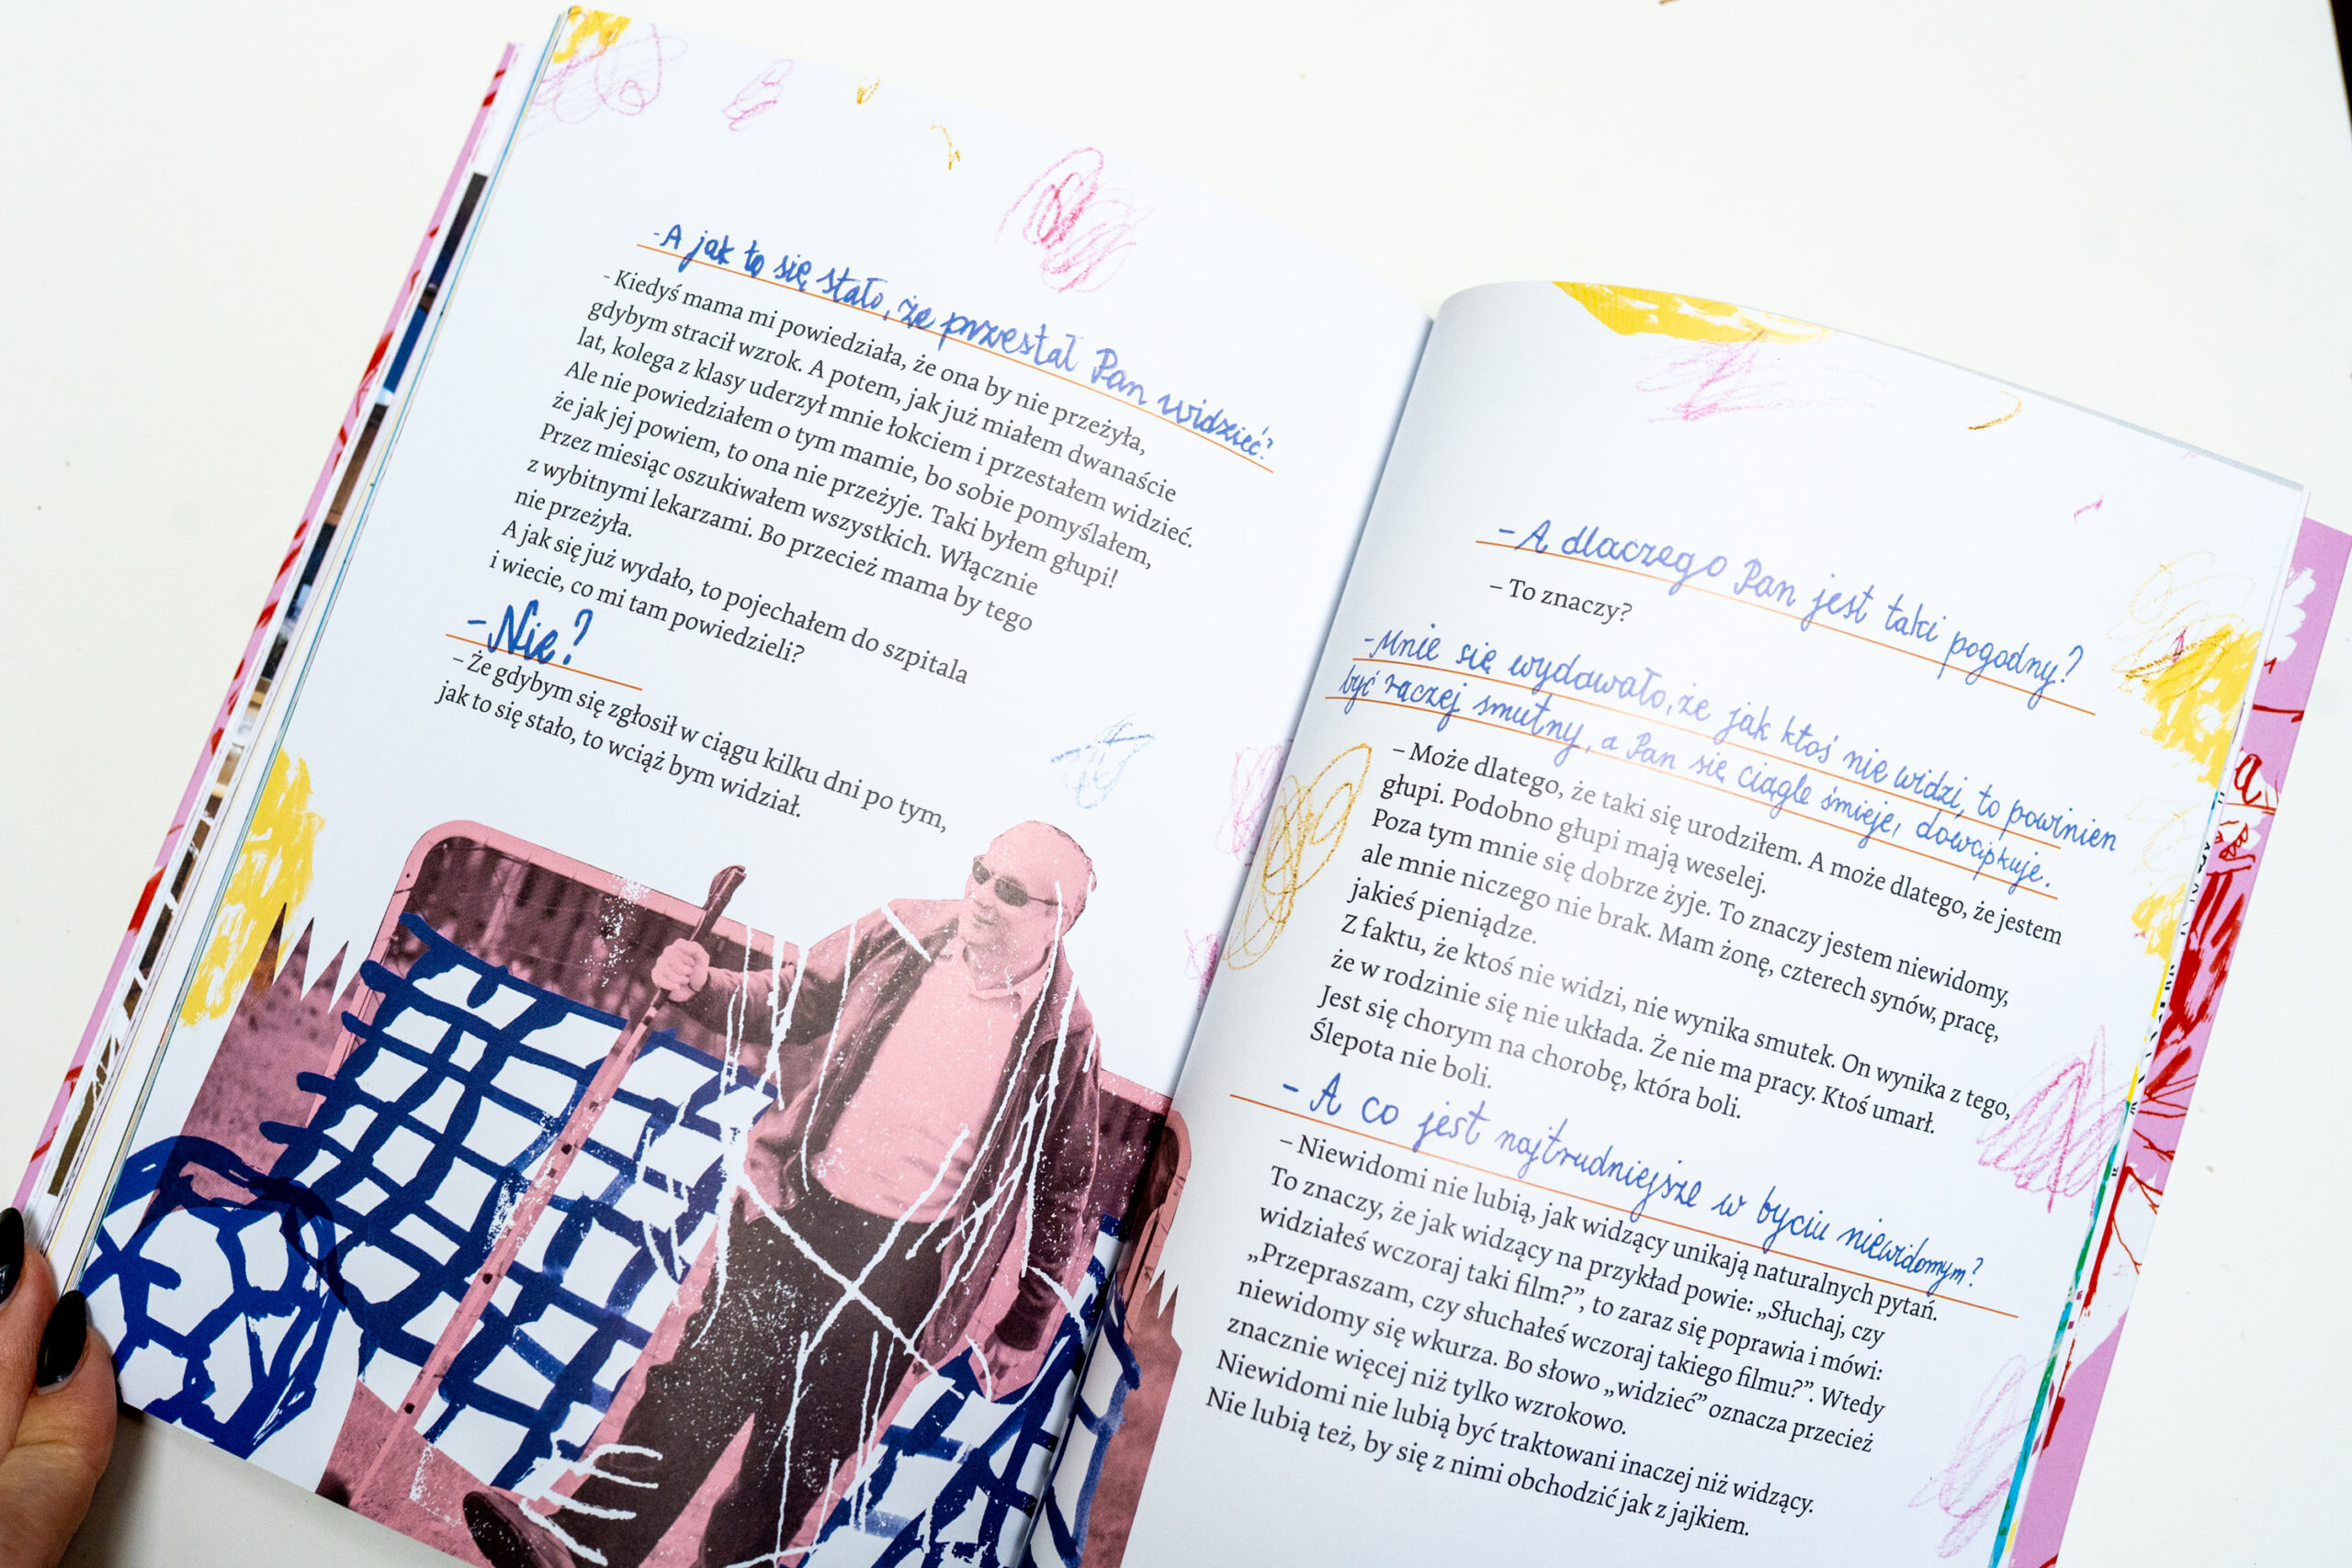 - A jak to się stało, że przestał Pan widzieć?
- Kiedyś mama mi powiedziała, że ona by nie przeżyła,
gdybym stracił wzrok. A potem, jak już miałem dwanaście
lat, kolega z klasy uderzył mnie łokciem i przestałem widzieć.
Ale nie powiedziałem o tym mamie, bo sobie pomyślałem,
że jak jej powiem, to ona nie przeżyje. Taki byłem głupi!
Przez miesiąc oszukiwałem wszystkich. Włącznie
z wybitnymi lekarzami. Bo przecież mama by tego
nie przeżyła.
A jak się już wydało, to pojechałem do szpitala
i wiecie, co mi tam powiedzieli?
- Nie?
– Że gdybym się zgłosił w ciągu kilku dni po tym,
jak to się stało, to wciąż bym widział.
– A dlaczego Pan jest taki pogodny?
– To znaczy?
- Mnie się wydawało, że jak ktoś nie widzi, to powinien
być raczej smutny, a Pan się ciągle śmieje, dowcipkuje.
– Może dlatego, że taki się urodziłem. A może dlatego, że jestem
głupi. Podobno głupi mają weselej.
Poza tym mnie się dobrze żyje. To znaczy jestem niewidomy,
ale mnie niczego nie brak. Mam żonę, czterech synów, pracę,
jakieś pieniądze.
Z faktu, że ktoś nie widzi, nie wynika smutek. On wynika z tego,
że w rodzinie się nie układa. Że nie ma pracy. Ktoś umarł.
Jest się chorym na chorobę, która boli.
Ślepota nie boli.
– A co jest najtrudniejsze w byciu niewidomym?
– Niewidomi nie lubią, jak widzący unikają naturalnych pytań.
To znaczy, że jak widzący na przykład powie: „Słuchaj, czy
widziałeś wczoraj taki film?”, to zaraz się poprawia i mówi:
„Przepraszam, czy słuchałeś wczoraj takiego filmu?”. Wtedy
niewidomy się wkurza. Bo słowo „widzieć” oznacza przecież
znacznie więcej niż tylko wzrokowo.
Niewidomi nie lubią być traktowani inaczej niż widzący.
Nie lubią też, by się z nimi obchodzić jak z jajkiem.